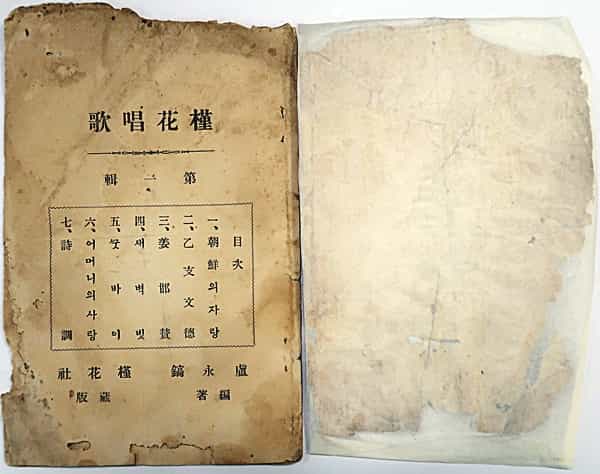 槿花唱歌
第一輯
目次
一、朝鮮의자랑
二、乙支文德
三、姜邯賛
四、새벽빗
五、
六、어머니의사랑
七、詩調
盧永鎬 槿花社
編著 藏版